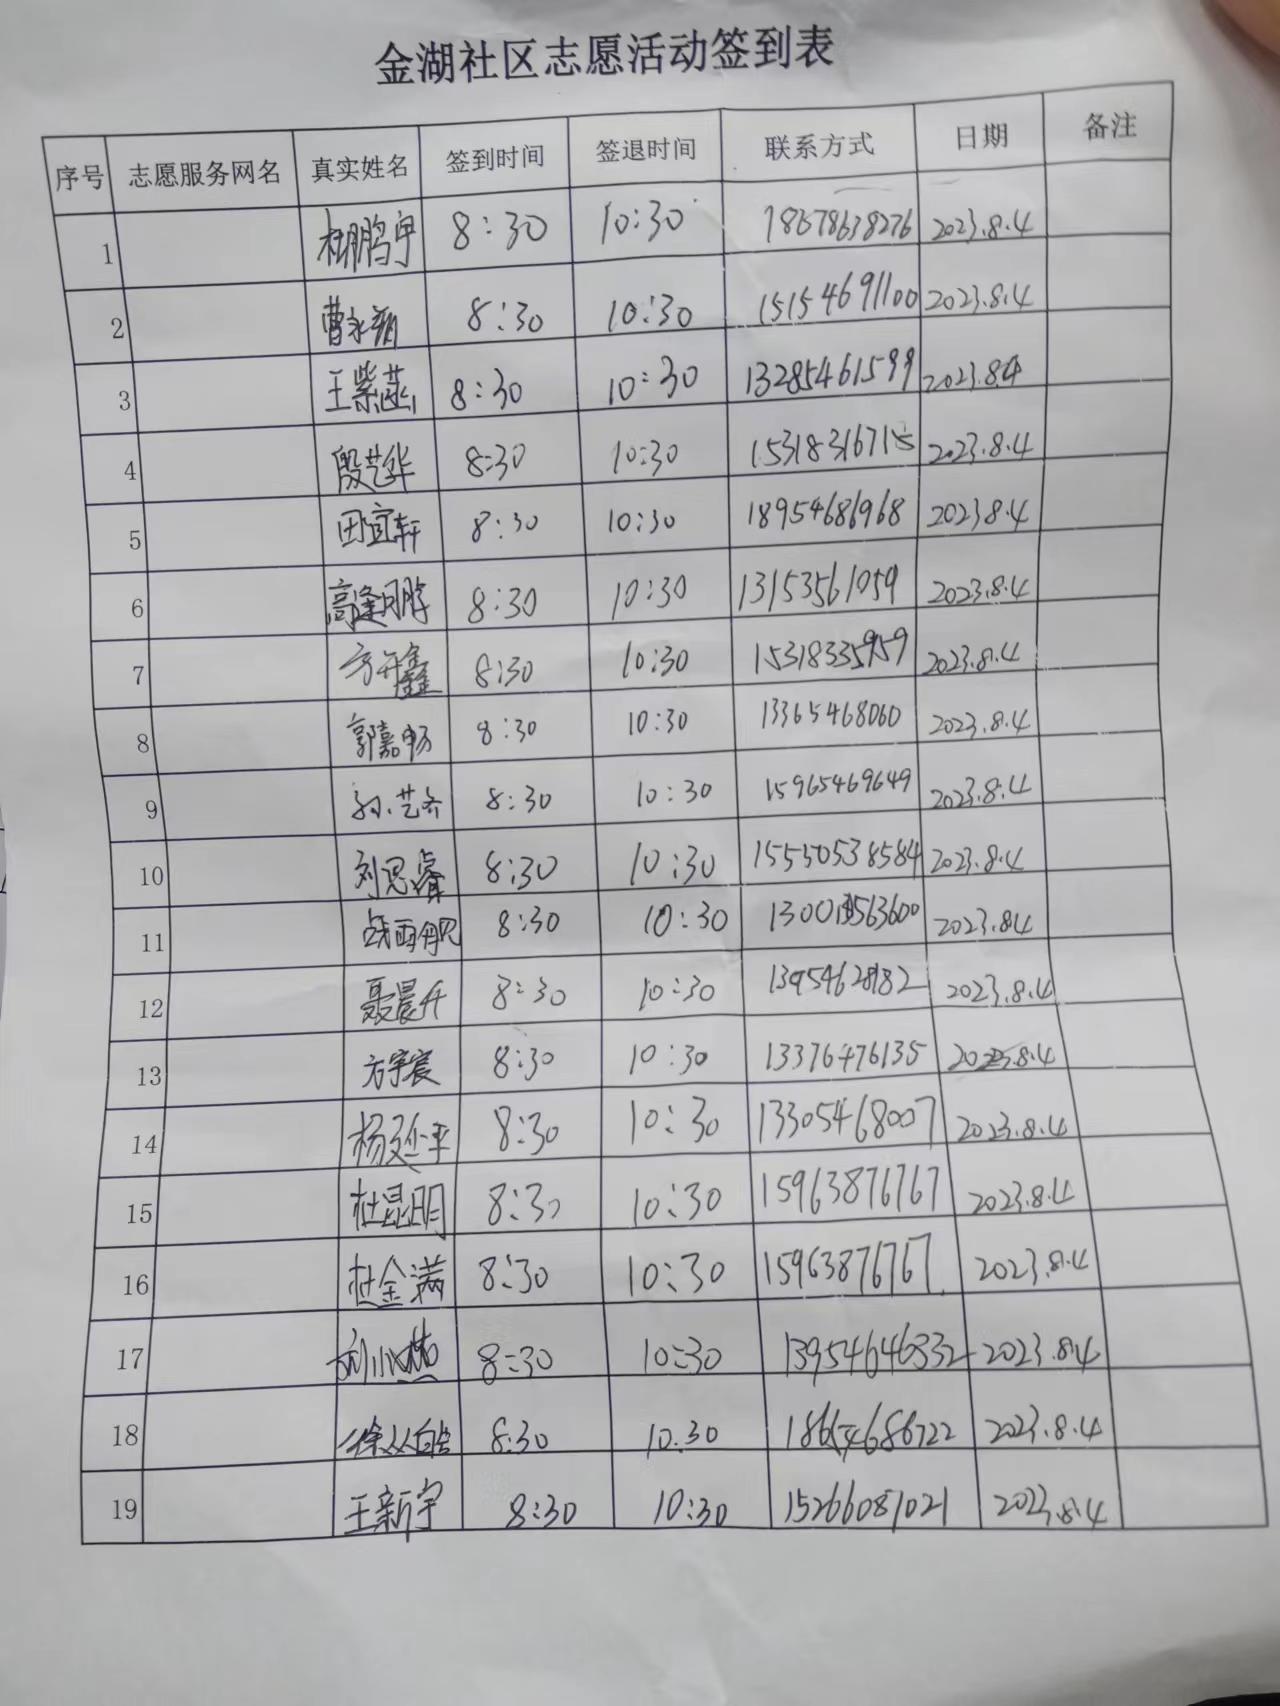 金湖社区志愿活动签到表
序号 志愿服务网名 真实姓名 签到时间 签退时间 联系方式 日期 备注
1 杜鹏宇 8:30 10:30 18678638276 2023.8.4
2 曹永 8:30 10:30 15154691100 2023.8.4
3 王紫菡 8:30 10:30 13285461599 2023.8.4
4 殷艺华 8:30 10:30 2023.8.4
5 田宜轩 8:30 10:30 18954686968 2023.8.4
6 高逢 8:30 10:30 13153561059 2023.8.4
7 方开鑫 8:30 10:30 15318335959 2023.8.4
8 郭嘉畅 8:30 10:30 13365468060 2023.8.4
9 孙艺乔 8:30 10:30 15965469649 2023.8.4
10 刘思睿 8:30 10:30 15550538584 2023.8.4
11 8:30 10:30 2023.8.4
12 聂晨升 8:30 10:30 13954628182 2023.8.4
13 方宇宸 8:30 10:30 13376476135 2023.8.4
14 杨延平 8:30 10:30 13305468007 2023.8.4
15 杜昆明 8:30 10:30 15963876767 2023.8.4
16 杜金满 8:30 10:30 15963876767 2023.8.4
17 8:30 10:30 13954646332 2023.8.4
18 徐 8:30 10.30 18654686722 2023.8.4
19 王新宇 8:30 10:30 15266087021 2023.8.4